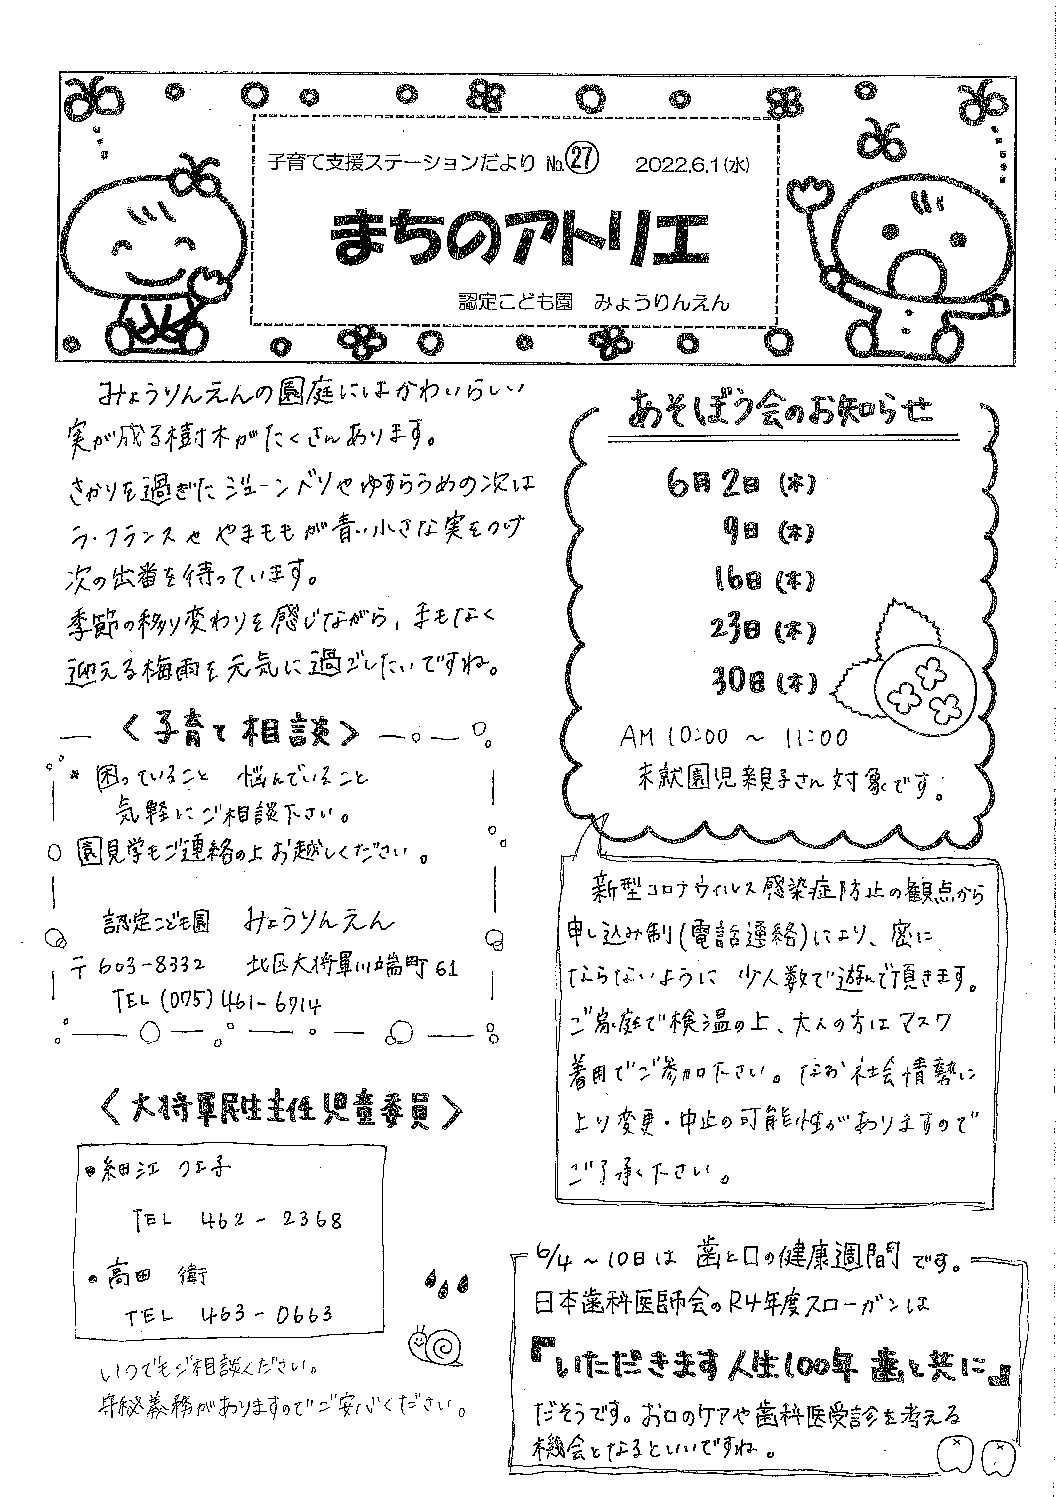 子育て支援ステーションだより No.㉗ 2022.6.1(水)
まちのアトリエ
認定こども園 みょうりんえん
みょうりんえんの園庭にはかわいらしい
実が成る樹木がたくさんあります。
さかりを過ぎたジューンベリやゆすらうめの次は
ラ・フランスややまももが青い小さな実をつけ
次の出番を待っています。
季節の移り変わりを感じながら、まもなく
迎える梅雨を元気に過ごしたいですね。
〈子育て相談〉
* 困っていること 悩んでいること
気軽にご相談下さい。
園見学もご連絡の上お越しください。
認定こども園 みょうりんえん
〒603-8332 北区大将軍川端町61
TEL (075)461-6914
〈大将軍民生主任児童委員〉
●細江 クエ子
TEL 462-2368
●高田 衛
TEL 463-0663
いつでもご相談ください。
守秘義務がありますのでご安心ください。
あそぼう会のお知らせ
6月2日(木)
9日(木)
16日(木)
23日(木)
30日(木)
AM 10:00 ~ 11:00
未就園児親子さん対象です。
新型コロナウィルス感染症防止の観点から
申し込み制(電話連絡)により、密に
ならないように 少人数で遊んで頂きます。
ご家庭で検温の上、大人の方はマスク
着用でご参加下さい。なお社会情勢に
より変更・中止の可能性がありますので
ご了承ください。
6/4~10日は 歯と口の健康週間です。
日本歯科医師会のR4年度スローガンは
『いただきます人生100年 歯と共に』
だそうです。お口のケアや歯科医受診を考える
機会となるといいですね。